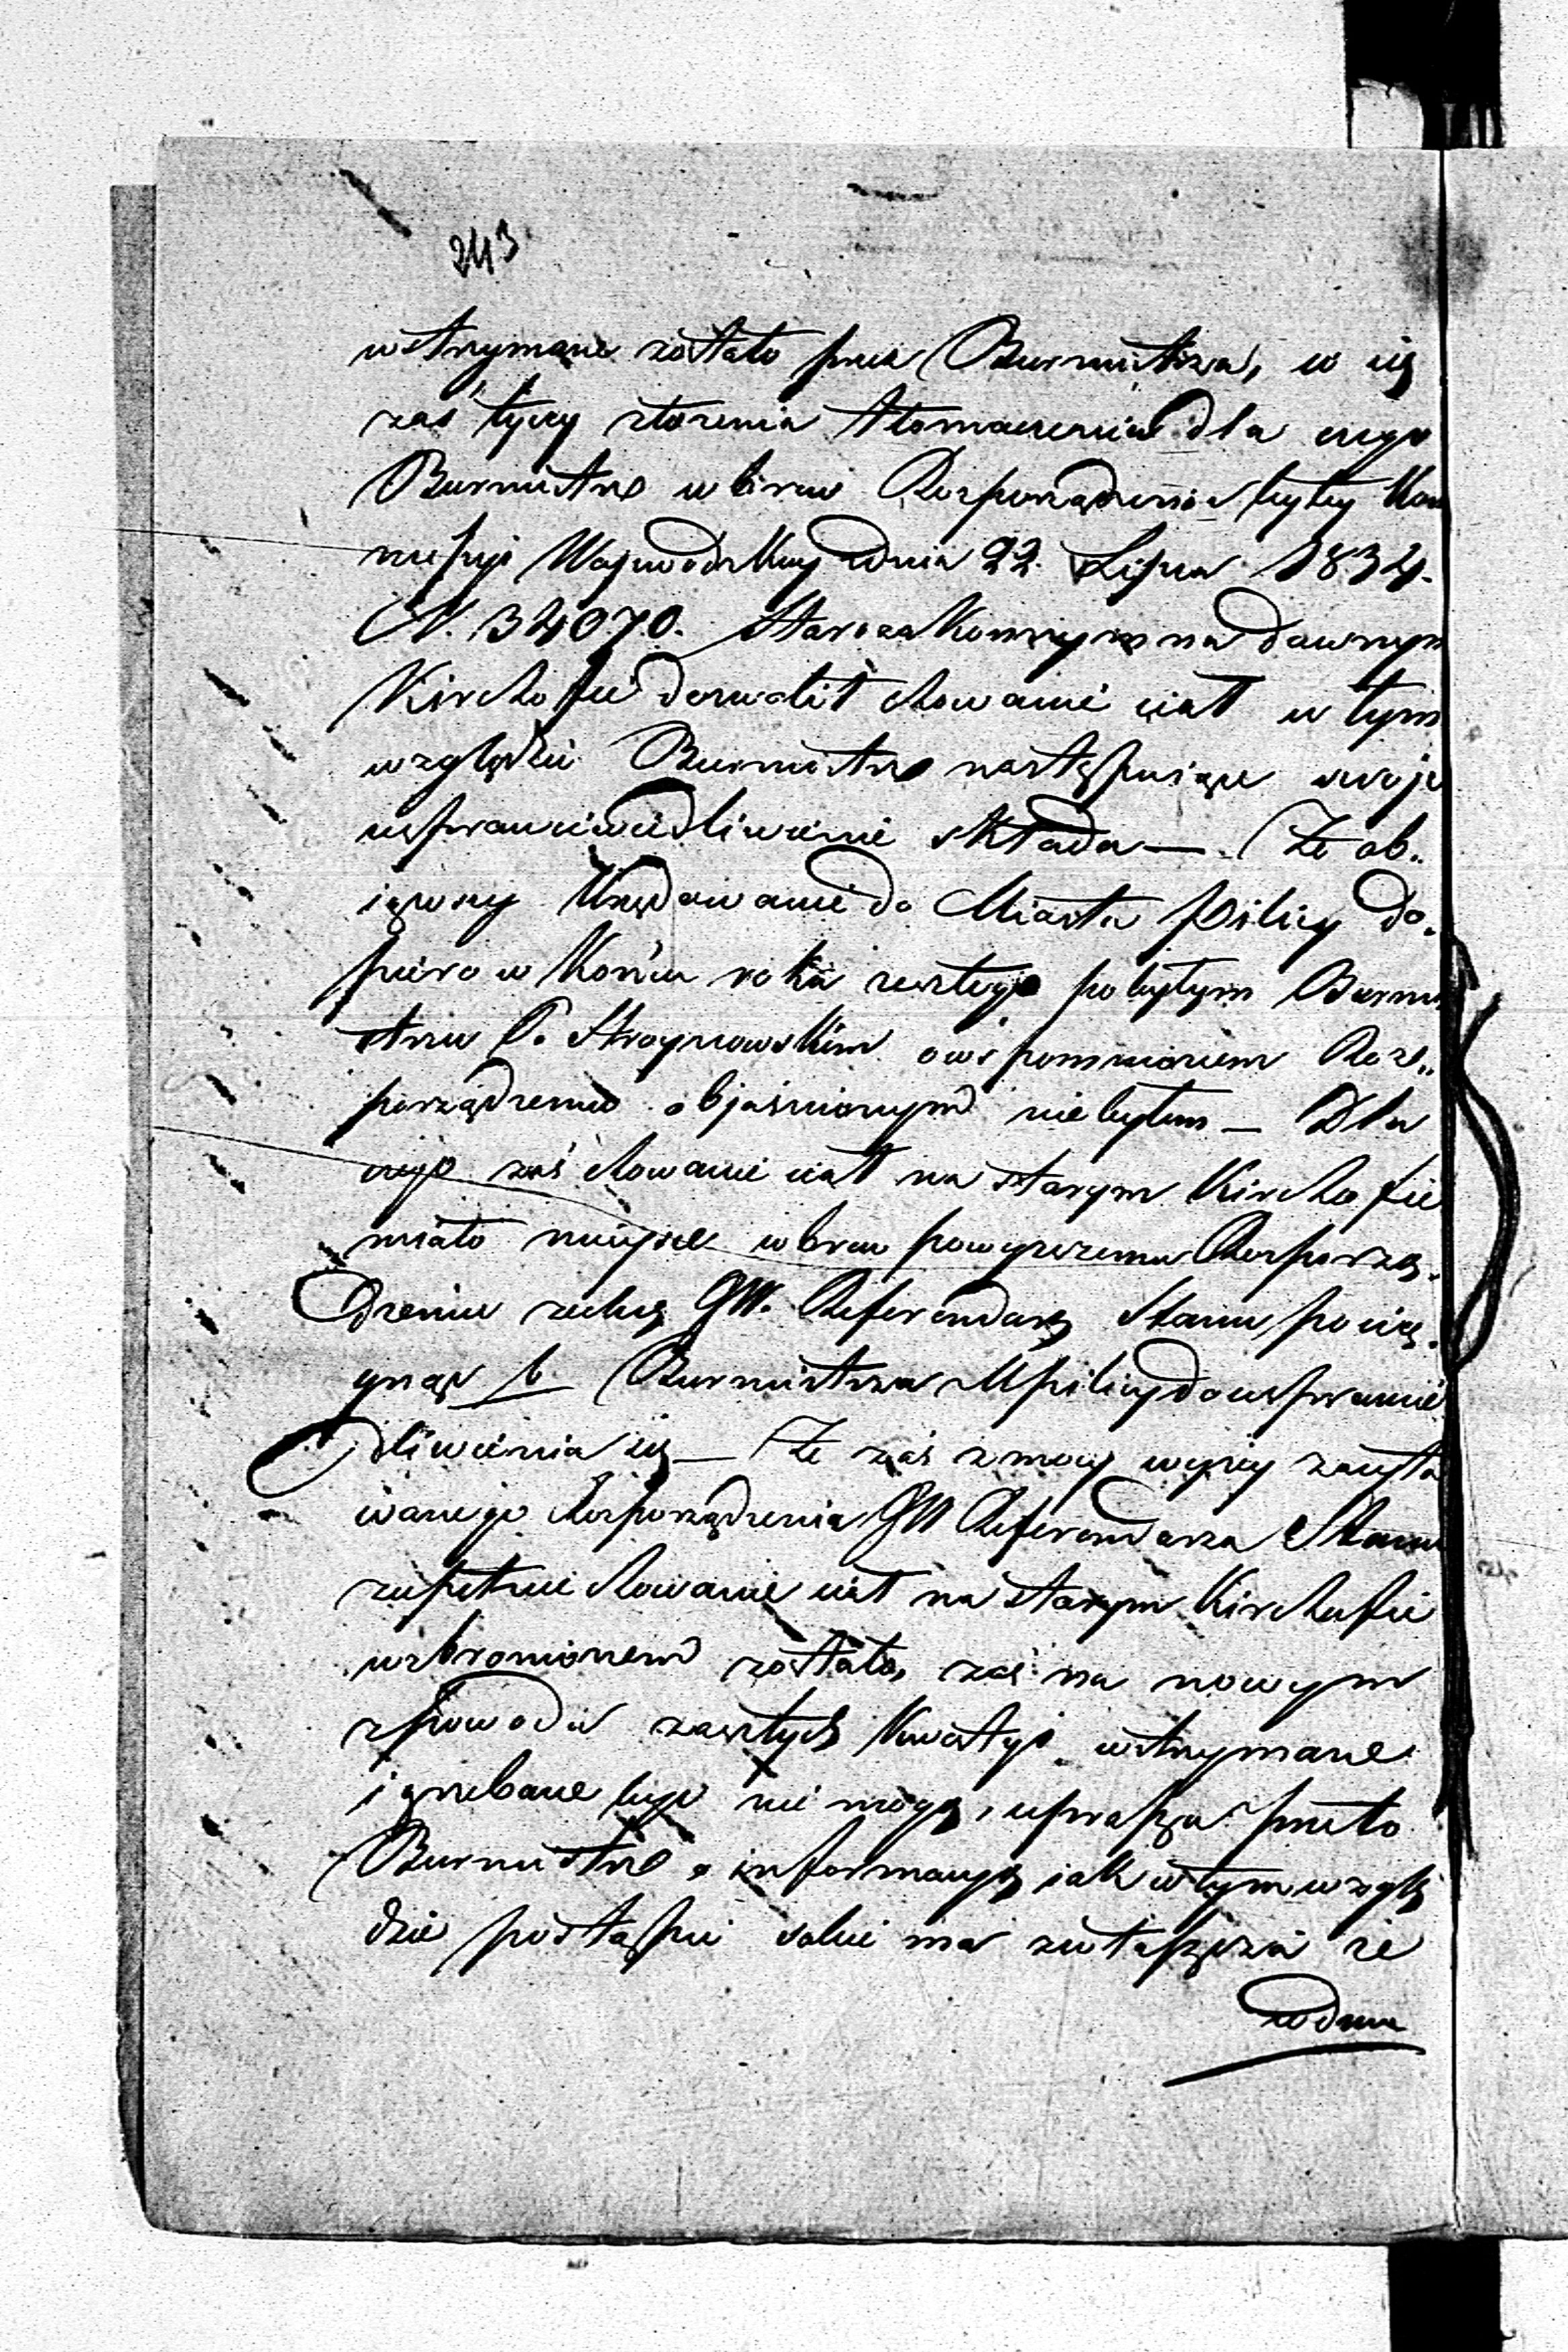 243
wstrzymane zostało przez Burmistrza, w ięz
zaś tyczy złożenia tłomaczenia dla czego
Burmistrz wbrew Rozporządzenia byłey Kom
missyi Wojewódzkiey z dnia 22. Lipca 1834.
N. 34070. Starozakonnym na dawnym
Kirchofie dozwolił chowanie ciał w tym
względzie Burmistrz następuiące swoje
usprawiedliwienie składa — Że ob„
iąwszy Urzędowanie do Miasta Pilicy do„
piero w Końcu roku zeszłego po byłym Burmi
strzu P. Stroynowskim o wspomnionem Roz„
porządzeniu objaśnionym niebyłem — Dla
czego zaś chowanie ciał na starym Kirchofie
miało mieysce wbrew powyższemu Rozporzą„
dzeniu zechcę JW. Referendarz Stanu pocią„
gnąć b. Burmistrza M Pilicy do usprawie
dliwienia się — Że zaś z mocy wyżey zacyto
wanego Rozporządzenia JW Referendarza Stanu
zupełnie chowanie ciał na starym Kirchofie
wzbronionem zostało, zaś na nowym
z powodu zaszłych Kwestyi wstrzymane
i grzebane być nie mogą, uprasza przeto
Burmistrz o informacyę iak w tym wzglę
dzie postąpić sobie ma zwłaszcza że